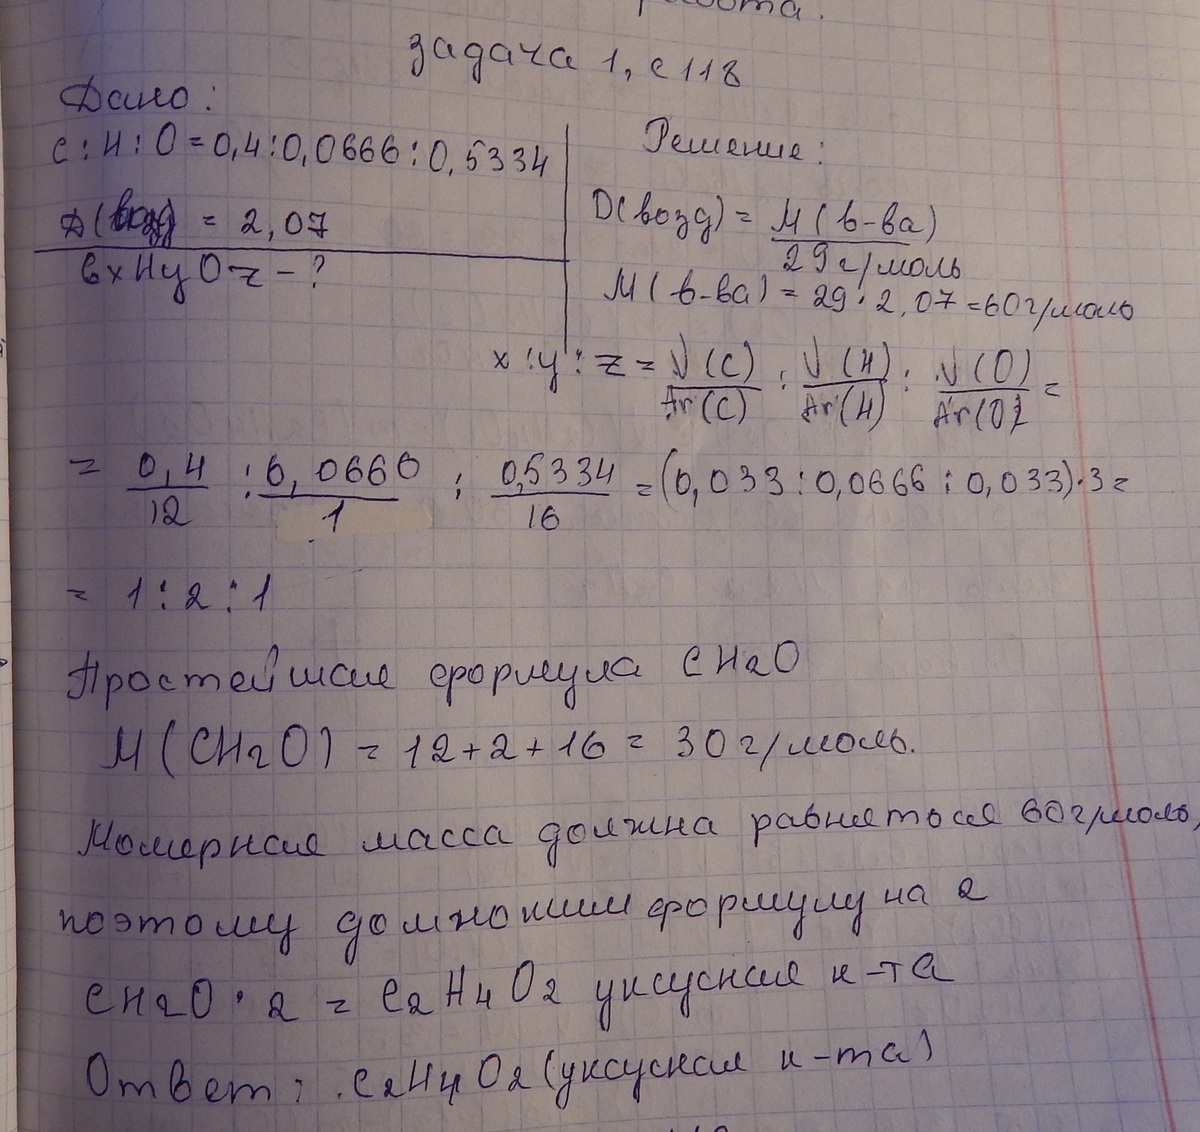 работа.
задача 1, с 118
Дано:
C : H : O = 0,4 : 0,0666 : 0,5334
D(возд) = 2,07
CxHyOz - ?
Решение:
D(возд) = M(в-ва) / 29 г/моль
M(в-ва) = 29 · 2,07 = 60 г/моль
x : y : z = ν(C)/Ar(C) : ν(H)/Ar(H) : ν(O)/Ar(O) =
= 0,4/12 : 0,0666/1 : 0,5334/16 = (0,033 : 0,0666 : 0,033) · 3 =
= 1 : 2 : 1
Простейшая формула CH2O
M(CH2O) = 12 + 2 + 16 = 30 г/моль.
Молярная масса должна равняться 60 г/моль,
поэтому домножим формулу на 2
CH2O · 2 = C2H4O2 уксусная к-та
Ответ: C2H4O2 (уксусная к-та)